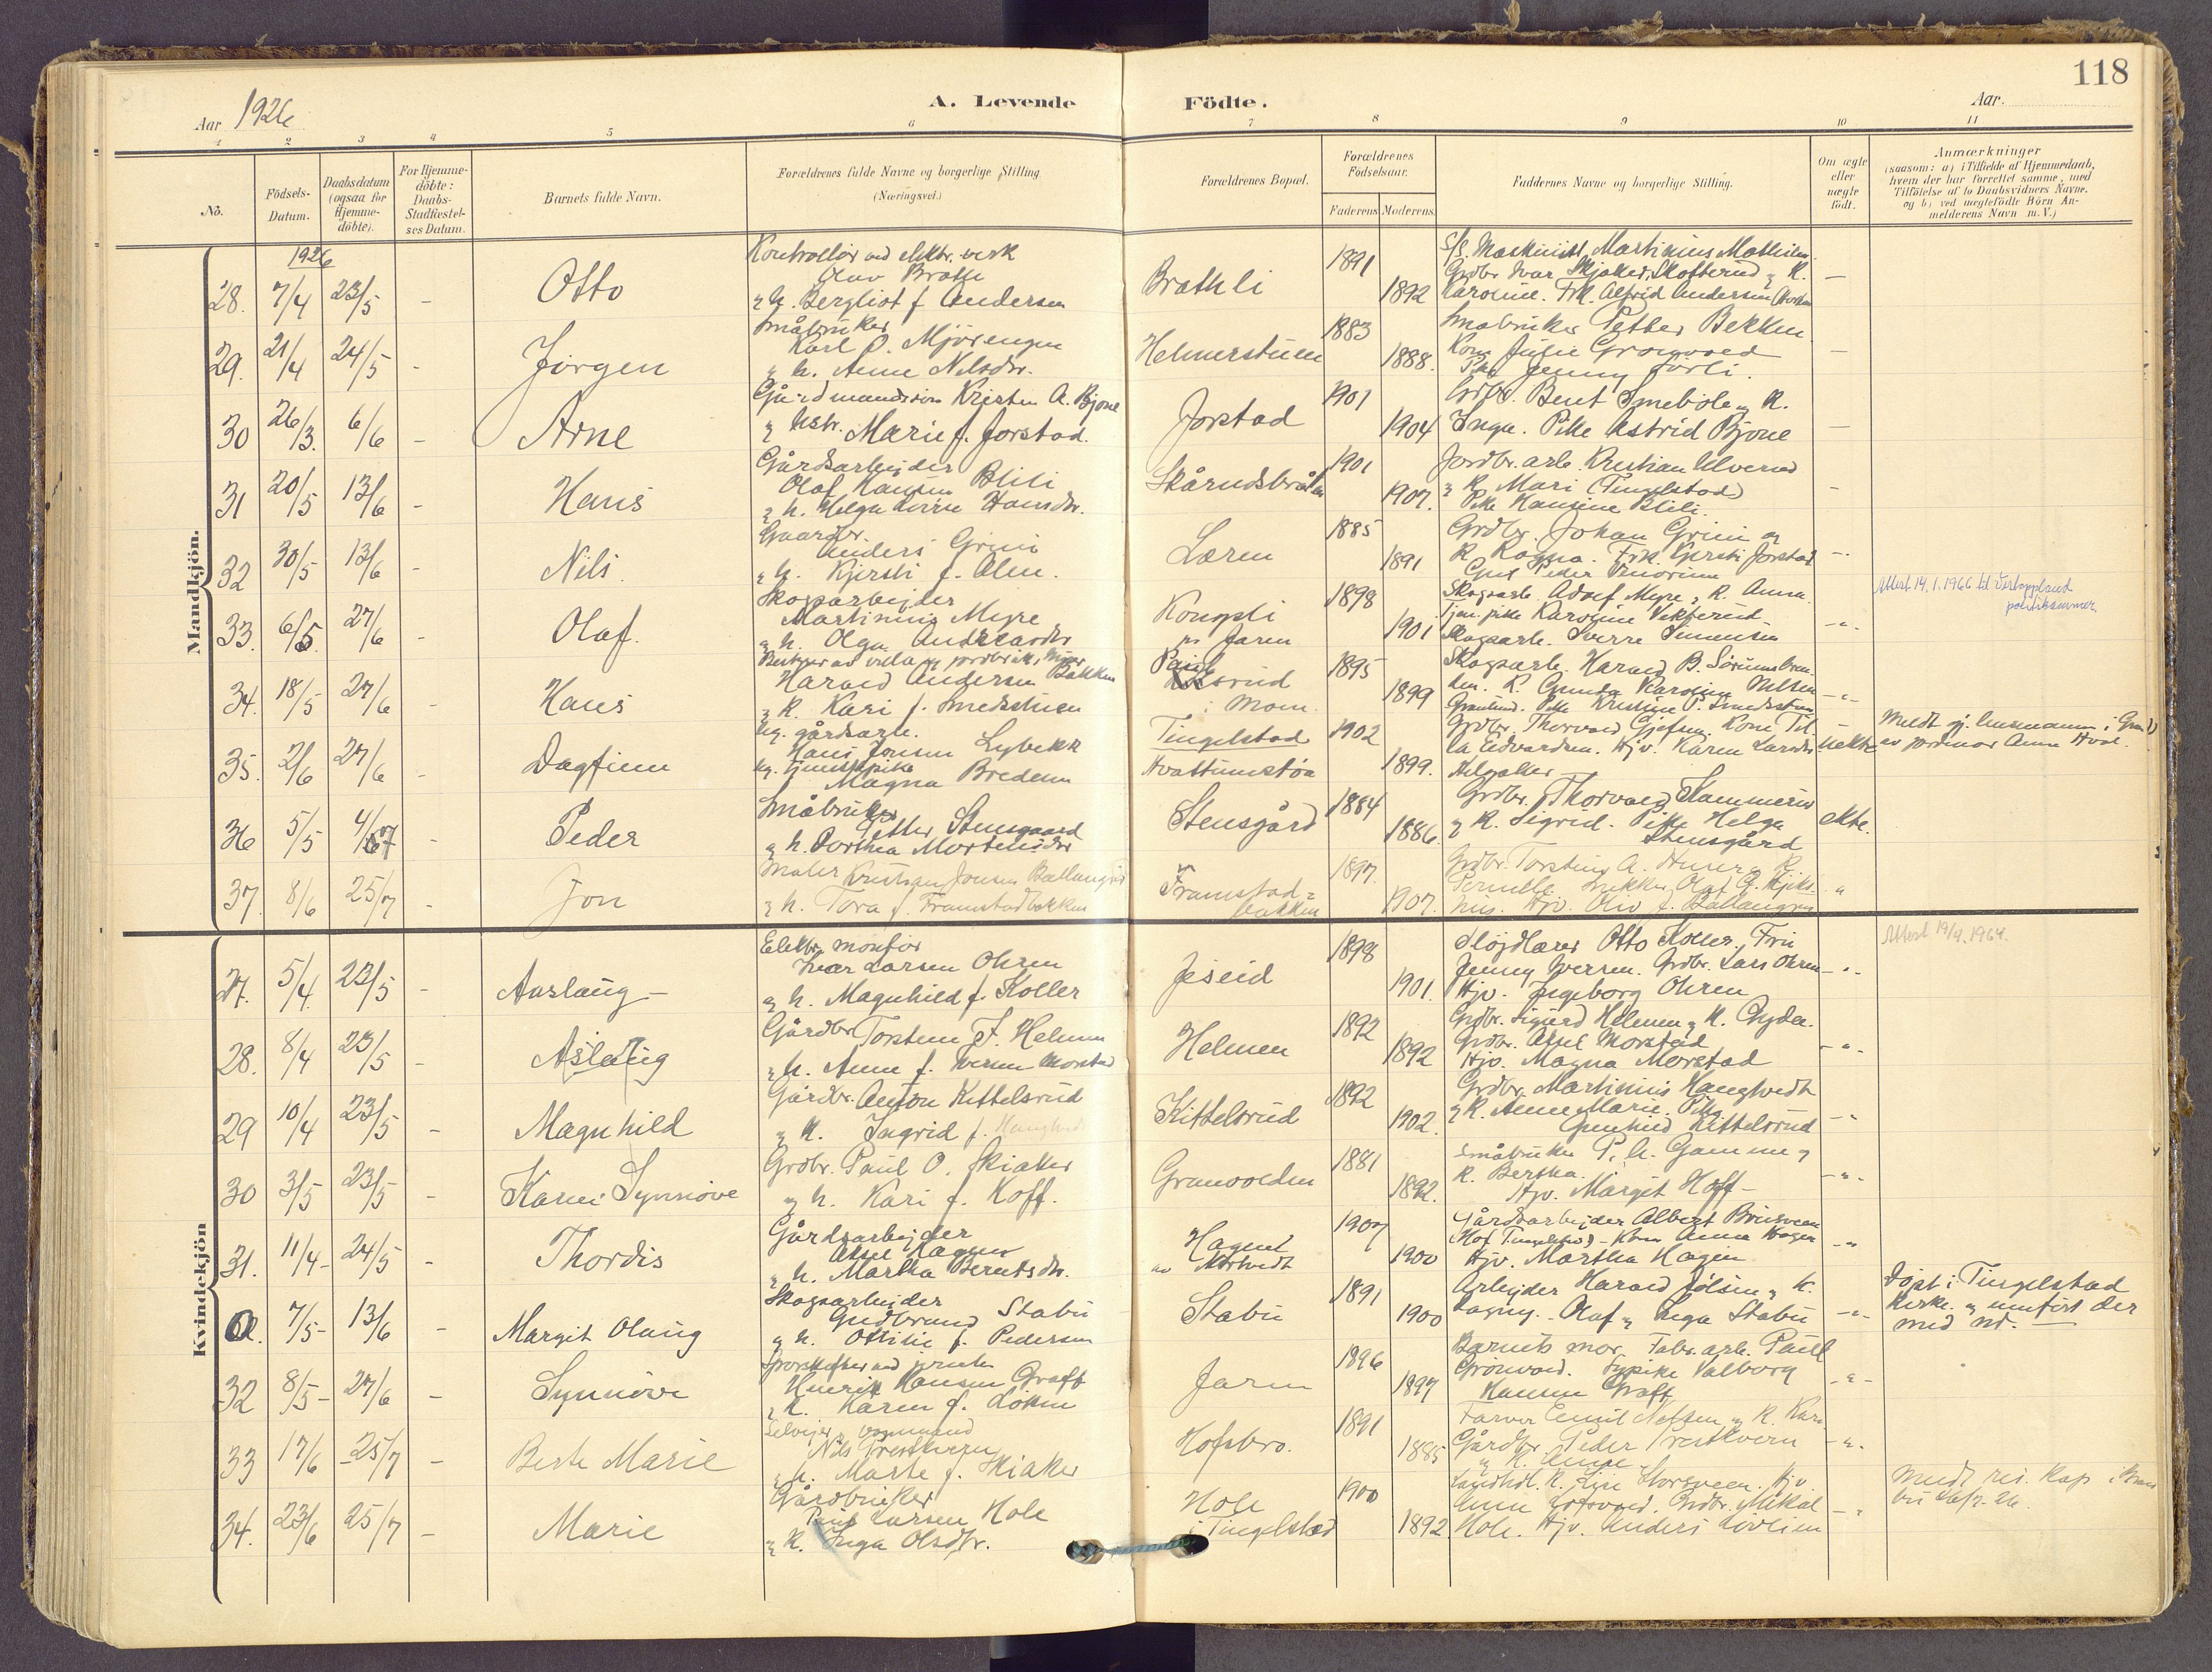 118
Aar 1926
A. Levende Födte.
Aar.
1 2 3 4 5 6 7 8 9 10 11
No.
Födsels-Datum.
Daabsdatum (ogsaa for Hjemme-döbte).
For Hjemme-döbte: Daabs-Stadfæstel-ses Datum.
Barnets fulde Navn.
Forældrenes fulde Navne og borgerlige Stilling (Næringsvei.)
Forældrenes Bopæl.
Forældrenes Födselsaar.
Faderens Moderens
Faddernes Navne og borgerlige Stilling.
Om ægte eller uægte födt.
Anmærkninger
(saasom: a) i Tilfælde af Hjemmedaab,
hvem der har forrettet samme, med
Tilföielse af to Daabsvidners Navne.
og b) ved uægtefödte Börn An-
melderens Navn m. V.)
Mandkjön.
1926
28. 7/4 23/5 - Otto
Kontrollör ved elektr. verk
Olav Brathli
og h. Bergliot f. Andersen
Brathli 1891 1892
S/S. Maskinist Martinius Mathisen
Grdbr. Ivar Skjaker, Skofterud og K.
Karoline. Frk. Alfrid Andersen
29. 21/4 24/5 - Jörgen
Småbruker
Karl O. Mjörengen
og h. Anne Nilsdtr.
Helmerstuen 1883 1888.
Småbruker Petter Bekken
Kone Julie Grönvold
Pike Jenny Torli.
30 26/3. 6/6 - Arne
Gårdmandssön Kristen A. Bjone
og hstr. Marie f. Jorstad.
Jorstad 1901 1904
Grdbr. Bent Smeböle og K.
Inga. Pike Astrid Bjone
31 20/5 13/6 - Hans
Gårdsarbeider
Olaf Hansen Blili
og h. Helga Lovise Hansdtr.
Skårudsbråten 1901 1907.
Jordbr.arb. Kristian Ulverud
og K. Mari (Tingelstad)
Pike Hansine Blili.
32 30/5 13/6 - Nils.
Gaardbr.
Anders Grini
og h. Kjersti f. Alm.
Loren 1885 1891
Grdbr. Johan Grini og
K. Ragna. Frk. Kjersti Jorstad
33. 6/5. 27/6 - Olaf.
Skogsarbeider
Martinius Myre
og h. Olga Andreasdtr
Kongsli pr Jaren 1898 1901
Skogsarb. Adolf Myre og K. Anna.
Tjen.pike Karoline Vekferud
Skogsarb. Sverre Simensen
-"-
Attest 14.1.1966 til Vestoppland
politikammer.
34. 18/5 27/6 - Hans
Harald Andersen Bakken
og K. Kari f. Smedstuen
i Moen. 1895 1899
Skogsarb. Harald B. Sörumsbrenden.
K. Gunda Karoline Nilsen
Granlund. Pike Kristine P. Smedstuen
-"-
35. 2/6 27/6 - Dagfinn
Ug. gårdsarb.
Hans Jensen Lybekk
ug. tjenestepike
Magna Breden
Tingelstad
Hvattumstöa 1902 1899.
Grdbr. Thorvald Gjefsen. Kone Til-
la Edvardsen. Hjv. Karen Larsdtr
Helgaker
Uekte
Meldt gj. lensmannen i Gran
av jordmor Anna Hval.
36 5/5 4/7 - Peder
Småbruker
Petter Stensgaard
og h. Dorthea Mortensdtr
Stensgård 1884 1886.
Grdbr. Thorvald Hammerud
og K. Sigrid. Pike Helga
Stensgård
ekte.
37. 8/6 25/7 - Jon
Maler Kristian Jonsen Ballangrud
og h. Tora f. Framstadbakken
Framstad-bakken 1897. 1907.
Grdbr. Torstein A. Huser og K.
Pernille.
"
Kvindekjön
27. 5/4. 23/5 - Aaslaug -
Elektr. montör
Ivar Larsen Ohren
og h. Magnhild f. Koller
Jeseid 1898 1901.
Slöjdlærer Otto Koller. Fru
Jenny Iversen. Grdbr. Lars Ohren
Hjv. Ingeborg Ohren
-"-
Attest 19/4.1964.
28. 8/4 23/5 - Åslaug
Gårdbr. Torsten T. Helmen
og h. Anne f. Iversen Morstad
Helmen 1892 1892
Grdbr. Sigurd Helmen og K. Gyda.
Grdbr. Aksel Morstad
Hjv. Magna Morstad
-"-
29 10/4 23/5 - Magnhild
Gårdbr. Anton Kittelsrud
og K. Ingrid f.
Kittelsrud 1892 1902.
Grdbr. Martinius Haugtvedt
og K. Anne Marie. Pike
Gunhild Kittelsrud
-"-
30 3/5 23/5 - Karen Synnöve
Grdbr. Paul O. Skiaker
og h. Kari f. Hoff.
Granvolden 1881 1892.
Småbruker P. h. Gamme og
K. Bertha.
Hjv. Margit Hoff -
-"-
31. 11/4 - 24/5 - Thordis
Gårdsarbeider
Aksel Hagen
og h. Martha Berntsdtr.
Hagen 1907 1900
Gårdsarbeider Albert Brusveen
(Hof Tingelstad) - Kone Anna Hagen
Hjv. Martha Hagen
-"-
Ol. 7/5 - 13/6 - Margit Olaug
Skogsarbeider
Gudbrand Stabu
og h. Ottilie f. Pedersen
Stabu 1891 1900
Arbejder Harald Jölsen og K.
Dagny. Olaf og Inga Stabu
-"-
Döpt i Tingelstad
kirke og innfört der
med nr.
32 8/5 - 27/6 - Synnöve
Henrik Hansen Graff
og K. Karen f. Löken
Jaren 1896 1897
Barnets mor. Fabr. arb. Paul
Grönvold. Sypike Valborg
Hansen Graff
-"-
33 17/6 - 25/7 - Berte Marie
Selveier og vognmand
Nils Prestkvern
og h. Marte f. Skiaker
Hofsbro. 1891 1885
Farver Emil Nilsen og K. Kari
Gårdbr. Peder Prestkvern
og K. Anne
-"-
34. 23/6 25/7 - Marie
Gårdbruker
Paul Larsen Hole
og K. Inga Olsdtr.
Hole
i Tingelstad 1900 1892
Landhdl. K. Lise Storsveen. Hjv.
Anne Grönvold. Grdbr. Mikal
Hole. Hjv. Anders Lovlien
-"-
Meldt res. kap. i Bran-
bu